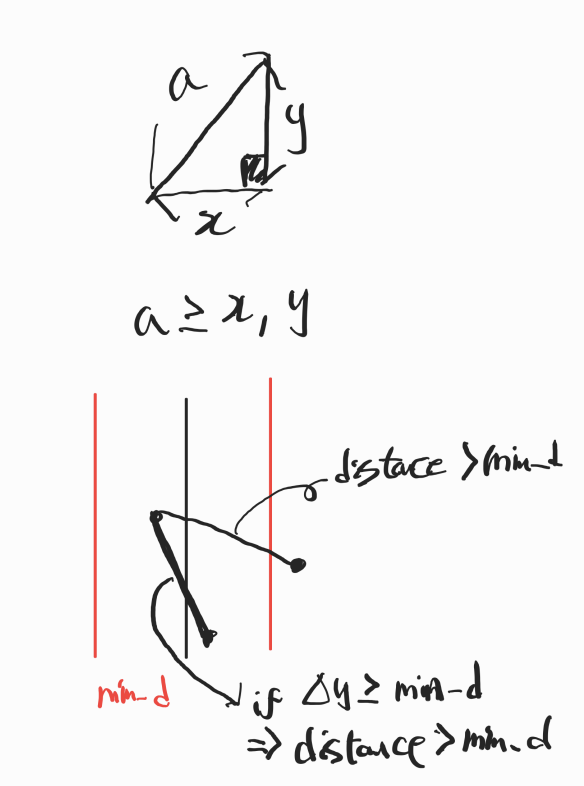 a
y
x
a ≥ x, y
distace > min_d
min_d
if Δy ≥ min-d
⇒ distance > min_d